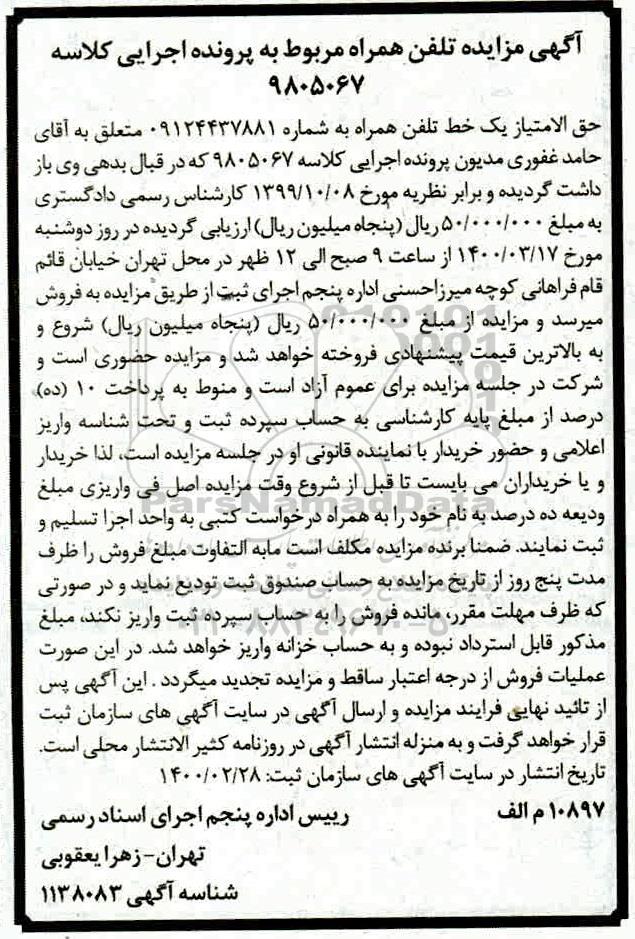 آگهی مزایده تلفن همراه مربوط به پرونده اجرایی کلاسه
۹۸۰۵۰۶۷
حق الامتیاز یک خط تلفن همراه به شماره ۰۹۱۲۴۴۳۷۸۸۱ متعلق به آقای
حامد غفوری مدیون پرونده اجرایی کلاسه ۹۸۰۵۰۶۷ که در قبال بدهی وی باز
داشت گردیده و برابر نظریه مورخ ۱۳۹۹/۱۰/۰۸ کارشناس رسمی دادگستری
به مبلغ ۵۰/۰۰۰/۰۰۰ ریال (پنجاه میلیون ریال) ارزیابی گردیده در روز دوشنبه
مورخ ۱۴۰۰/۰۳/۱۷ از ساعت ۹ صبح الی ۱۲ ظهر در محل تهران خیابان قائم
قام فراهانی کوچه میرزاحسنی اداره پنجم اجرای ثبت از طریق مزایده به فروش
میرسد و مزایده از مبلغ ۵۰/۰۰۰/۰۰۰ ریال (پنجاه میلیون ریال) شروع و
به بالاترین قیمت پیشنهادی فروخته خواهد شد و مزایده حضوری است و
شرکت در جلسه مزایده برای عموم آزاد است و منوط به پرداخت ۱۰ (ده)
درصد از مبلغ پایه کارشناسی به حساب سپرده ثبت و تحت شناسه واریز
اعلامی و حضور خریدار با نماینده قانونی او در جلسه مزایده است، لذا خریدار
و یا خریداران می بایست تا قبل از شروع وقت مزایده اصل فی واریزی مبلغ
ودیعه ده درصد به نام خود را به همراه درخواست کتبی به واحد اجرا تسلیم و
ثبت نمایند. ضمنا برنده مزایده مکلف است مابه التفاوت مبلغ فروش را ظرف
مدت پنج روز از تاریخ مزایده به حساب صندوق ثبت تودیع نماید و در صورتی
که ظرف مهلت مقرر، مانده فروش را به حساب سپرده ثبت واریز نکند، مبلغ
مذکور قابل استرداد نبوده و به حساب خزانه واریز خواهد شد. در این صورت
عملیات فروش از درجه اعتبار ساقط و مزایده تجدید میگردد . این آگهی پس
از تائید نهایی فرایند مزایده و ارسال آگهی در سایت آگهی های سازمان ثبت
قرار خواهد گرفت و به منزله انتشار آگهی در روزنامه کثیر الانتشار محلی است.
تاریخ انتشار در سایت آگهی های سازمان ثبت: ۱۴۰۰/۰۲/۲۸
۱۰۸۹۷ م الف رییس اداره پنجم اجرای اسناد رسمی
تهران-زهرا یعقوبی
شناسه آگهی ۱۱۳۸۰۸۳
ParsNamadData